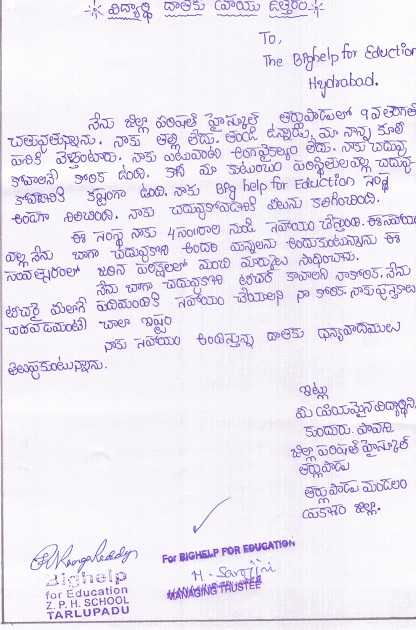 విద్యార్థి దాతకు వ్రాయు ఉత్తరం
To,
The Bighelp for Eduction
Hydrabad.
నేను జిల్లా పరిషత్ హైస్కూల్ తర్లుపాడులో 9వ తరగతి
చదువుతున్నాను. నాకు తల్లి లేదు. తండ్రి ఉన్నాడు. మా నాన్న కూలి
పనికి వెళ్తుంటారు. నాకు ఎటువంటి అంగవైకల్యం లేదు. నాకు చదువు
కోవాలనే కోరిక ఉంది. కానీ మా కుటుంబం పరిస్థితులవల్ల చదువు
కోవడానికి కష్టంగా ఉంది. నాకు Big help for Eduction సంస్థ
అండగా నిలిచింది. నాకు చదువుకోవడానికి వీలును కలిగించింది.
ఈ సంస్థ నాకు 4సంరాల నుండి సహాయం చేస్తోంది. ఈ సహాయం
వల్ల నేను బాగా చదువుకొని అందరి మన్ననలను అందుకుంటున్నాను ఈ
సంవత్సరంలో జరిగిన పరీక్షలలో మంచి మార్కులు సాధించాను.
నేను బాగా చదువుకొని టీచర్ కావాలని నాకోరిక. నేను
టీచరై మలాగే పదిమందికి సహాయం చేయాలని నా కోరిక. నాకుపుస్తకాలు
చదవడమంటే చాలా ఇష్టం
నాకు సహాయం అందిస్తున్న దాతకు ధన్యవాదములు
తెలుపుకుంటున్నాను.
ఇట్లు
మీ ప్రియమైన విద్యార్థిని,
కుందురు. పావని.
జిల్లా పరిషత్ హైస్కూల్
తర్లుపాడు
తర్లుపాడు మండలం
ప్రకాశం జిల్లా.
Bighelp
for Education
Z. P. H. SCHOOL
TARLUPADU
For BIGHELP FOR EDUCATION
H. Sarojini
MANAGING TRUSTEE